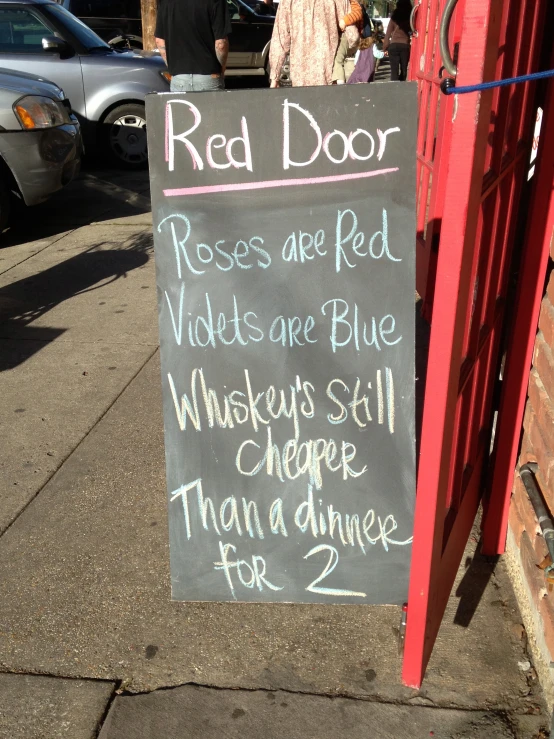 Red Door
Roses are Red
Violets are Blue
Whiskey's Still
cheaper
Than a dinner
for 2